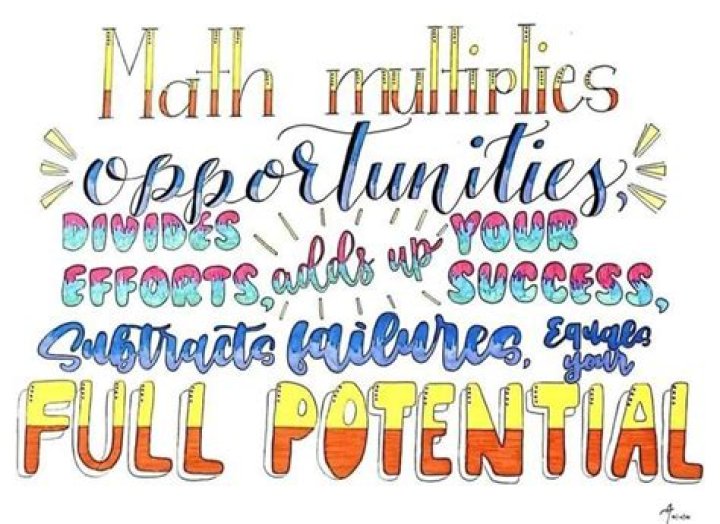 Math multiplies
opportunities,
DIVIDES adds up YOUR
EFFORTS, SUCCESS,
Subtracts failures, Equals your
FULL POTENTIAL